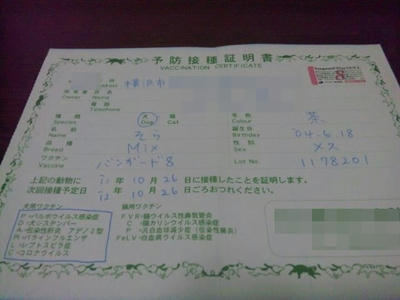 予防接種証明書
VACCINATION CERTIFICATE
Address 横浜市
Owner Name
電話
Telephone
種類 犬 猫 毛色 茶
Species Dog Cat Colour
名前 そら 生年月日 '04.6.18
Name Birthday
品種 Mix 性別 メス
Breed Sex
ワクチン バンガード8 Lot No. 1178201
Vaccine
上記の動物に '11年10月26日に接種したことを証明します。
次回接種予定日 '12年10月26日ごろおこれください。
犬用ワクチン 猫用ワクチン
P=パルボウイルス感染症 FVR=猫ウイルス性鼻気管炎
D=犬ジステンパー C=猫カリシウイルス感染症
A=伝染性肝炎 アデノ2型 P=汎白血球減少症(伝染性腸炎)
P=パラインフルエンザ FeLV=白血病ウイルス感染症
L=レプトスピラ症
C=コロナウイルス